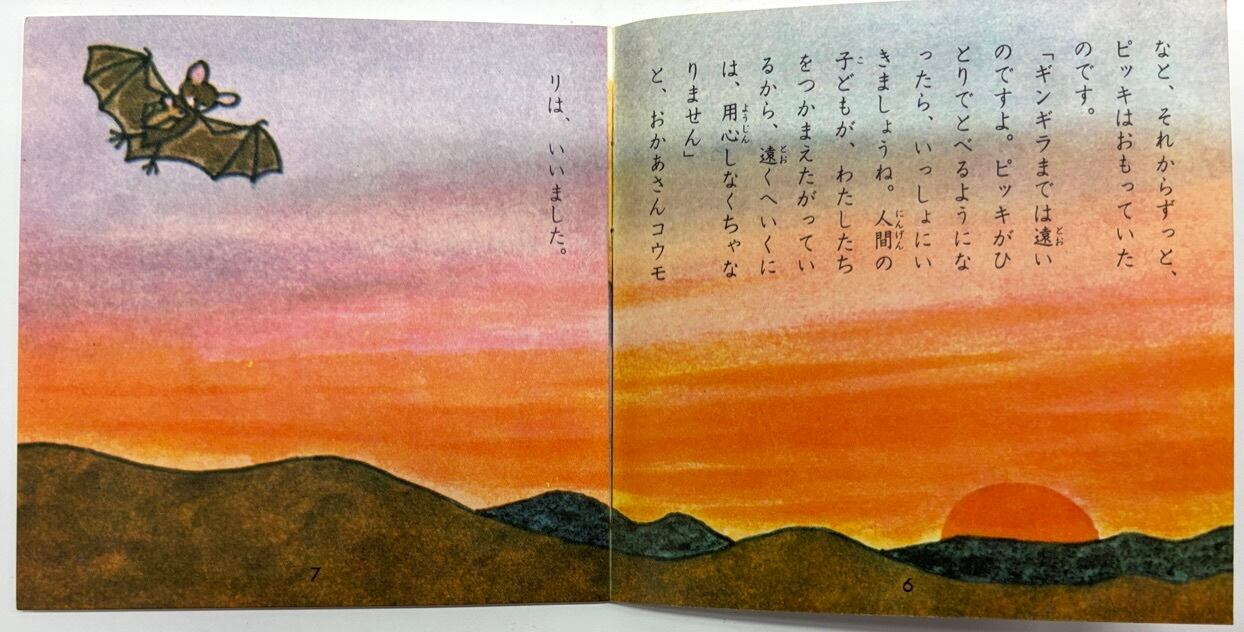 なと、それからずっと、
ピッキはおもっていた
のです。
「ギンギラまでは遠い
のですよ。ピッキがひ
とりでとべるようにな
ったら、いっしょにい
きましょうね。人間の
子どもが、わたしたち
をつかまえたがってい
るから、遠くへいくに
は、用心しなくちゃな
りません」
と、おかあさんコウモ
6
リは、いいました。
7